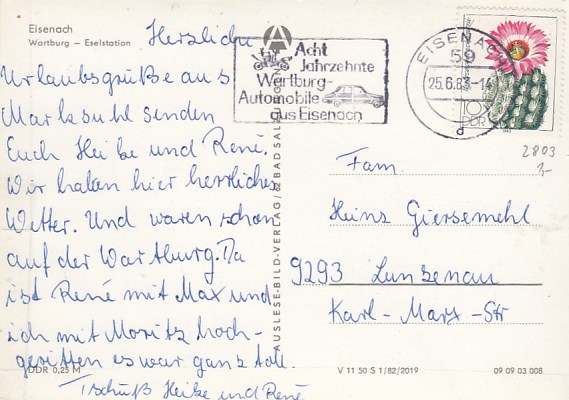 Eisenach
Wartburg – Eselstation
Herzliche
Urlaubsgrüße aus
Marksuhl senden
Euch Heike und René.
Wir haben hier herrliches
Wetter. Und waren schon
auf der Wartburg. Da
ist René mit Max und
ich mit Moritz hoch-
geritten es war ganz toll.
Tschüß Heike und René
DDR 0,25 M
AUSLESE-BILD-VERLAG / BAD SALZUNGEN
A
Acht
Jahrzehnte
Wartburg-
Automobile
aus Eisenach
EISENACH
59
25.6.83-14
10
DDR
2803
Fam.
Heinz Giersemehl
9293 Lunzenau
Karl-Marx-Str
V 11 50 S 1/82/2019
09 09 03 008